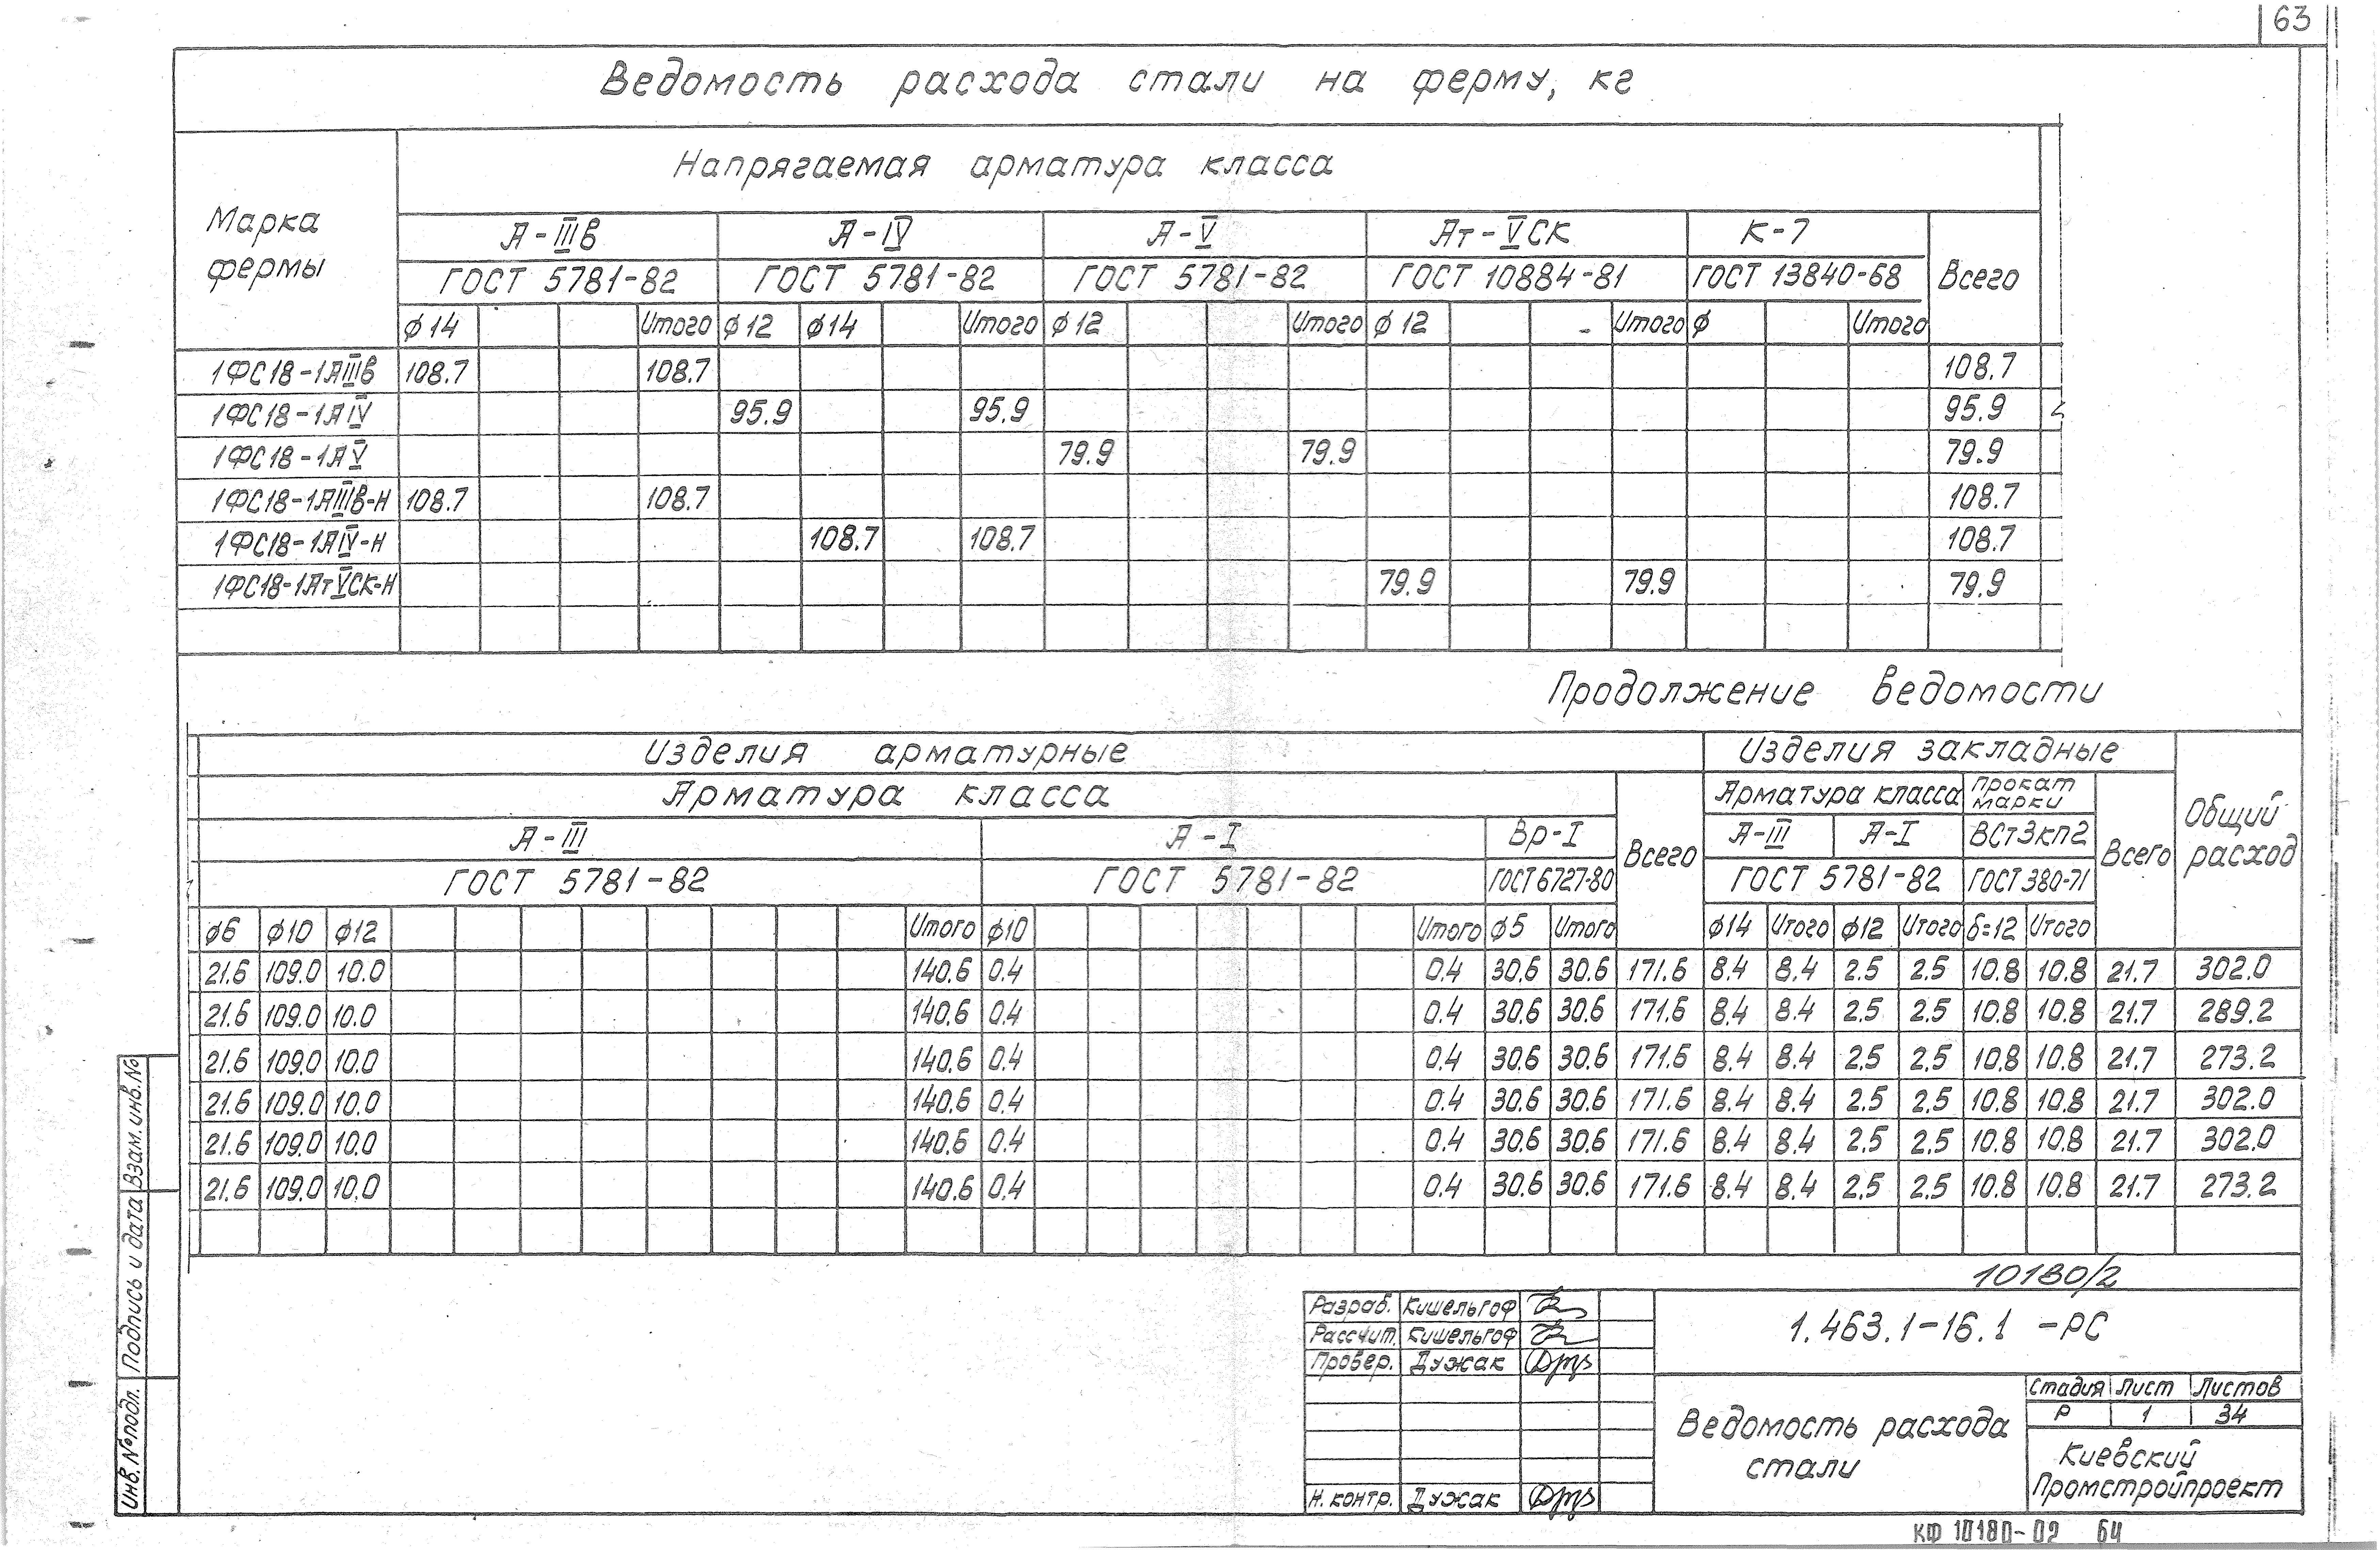 63
Ведомость расхода стали на ферму, кг
Марка фермы
Напрягаемая арматура класса
А-IIIв А-IV А-V Ат-VСК К-7
ГОСТ 5781-82 ГОСТ 5781-82 ГОСТ 5781-82 ГОСТ 10884-81 ГОСТ 13840-68 Всего
ф14 Итого ф12 ф14 Итого ф12 Итого ф12 - Итого ф Итого
1ФС18-1АIIIв 108.7 108.7 108.7
1ФС18-1АIV 95.9 95.9 95.9
1ФС18-1АV 79.9 79.9 79.9
1ФС18-1АIIIв-Н 108.7 108.7 108.7
1ФС18-1АIV-Н 108.7 108.7 108.7
1ФС18-1АтVСК-Н 79.9 79.9 79.9
Продолжение ведомости
Изделия арматурные Изделия закладные Общий расход
Арматура класса Всего Арматура класса Прокат марки Всего
А-III А-I Вр-I А-III А-I ВСт3кп2
ГОСТ 5781-82 ГОСТ 5781-82 ГОСТ 6727-80 ГОСТ 5781-82 ГОСТ 380-71
ф6 ф10 ф12 Итого ф10 Итого ф5 Итого ф14 Итого ф12 Итого δ=12 Итого
21.6 109.0 10.0 140.6 0.4 0.4 30.6 30.6 171.6 8.4 8.4 2.5 2.5 10.8 10.8 21.7 302.0
21.6 109.0 10.0 140.6 0.4 0.4 30.6 30.6 171.6 8.4 8.4 2.5 2.5 10.8 10.8 21.7 289.2
21.6 109.0 10.0 140.6 0.4 0.4 30.6 30.6 171.6 8.4 8.4 2.5 2.5 10.8 10.8 21.7 273.2
21.6 109.0 10.0 140.6 0.4 0.4 30.6 30.6 171.6 8.4 8.4 2.5 2.5 10.8 10.8 21.7 302.0
21.6 109.0 10.0 140.6 0.4 0.4 30.6 30.6 171.6 8.4 8.4 2.5 2.5 10.8 10.8 21.7 302.0
21.6 109.0 10.0 140.6 0.4 0.4 30.6 30.6 171.6 8.4 8.4 2.5 2.5 10.8 10.8 21.7 273.2
10180/2
Разраб. Кишельгоф
Рассчит. Кишельгоф
Провер. Дужак
Н. контр. Дужак
1.463.1-16.1 -РС
Ведомость расхода
стали
Стадия Лист Листов
Р 1 34
Киевский
Промстройпроект
Инв.№подл. Подпись и дата Взам.инв.№
КФ 10180-02 64